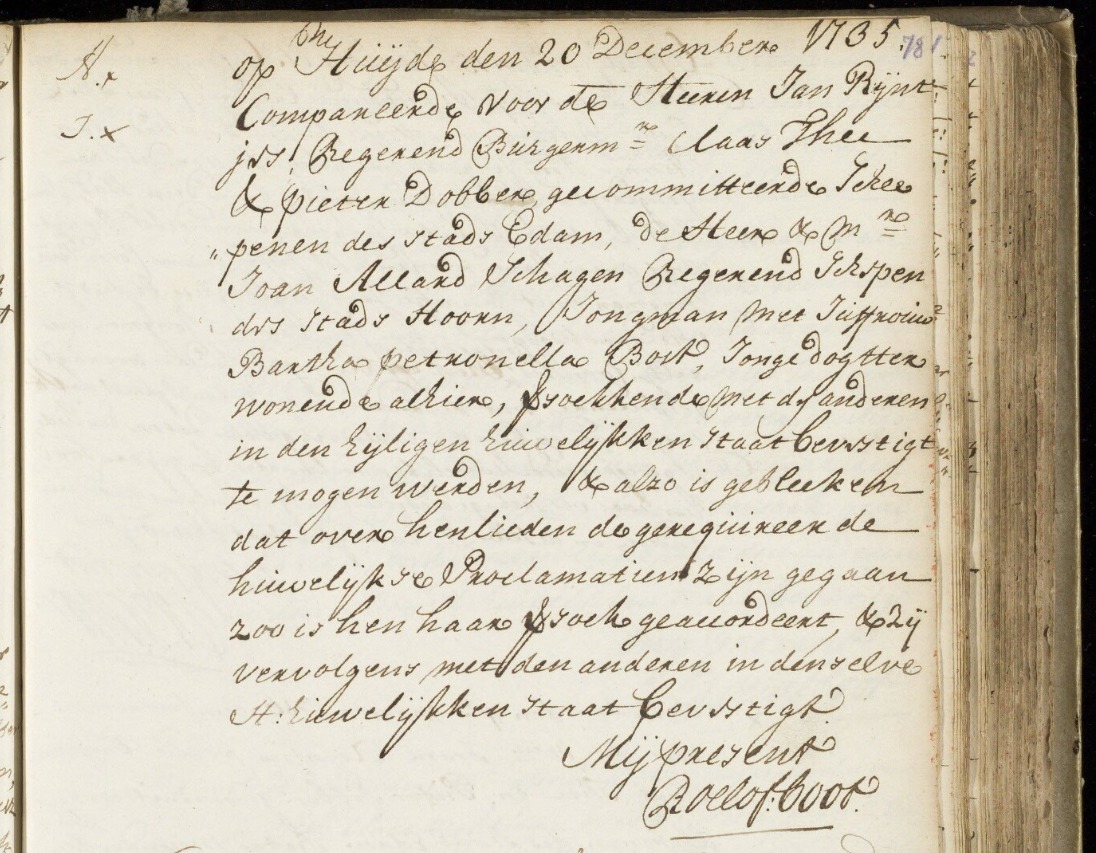 op Huijde den 20 December 1735. 781
Compareerde voor de Heeren Jan Rijnt
jes, Regerend Burgerm re Claas Thee
& pieter Dobber, gecommitteerde Schee
"penen des stads Edam, de Heer & M re
Joan Allard Schagen Regerend Schepen
des stads Hoorn, Jongman met Juffrouw
Bartha petronella Bost, Jonge dogtter
wonende alhier, versoekkende met d'anderen
in den hijligen huwelijkken staat bevestigt
te mogen werden, & alzo is gebleeken
dat over henlieden de gerequireerde
huwelijkse Proclamatien zijn gegaan
zoo is hen haar versoek geaccordeert, & zij
vervolgens met den anderen in denselve
H: huwelijkken staat bevestigt.
Mij present
Roelof: boot.